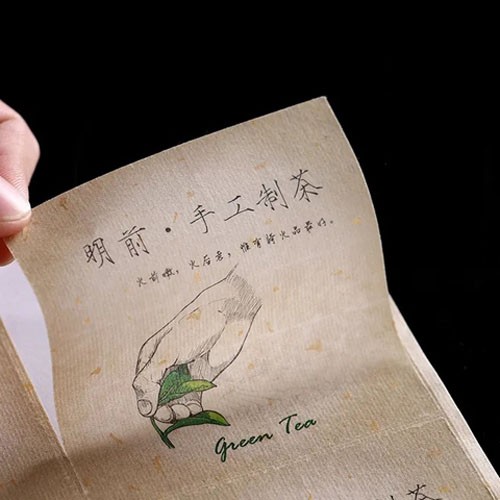 明前·手工制茶
火前嫩，火后老，惟有骑火品最好。
Green Tea
茶